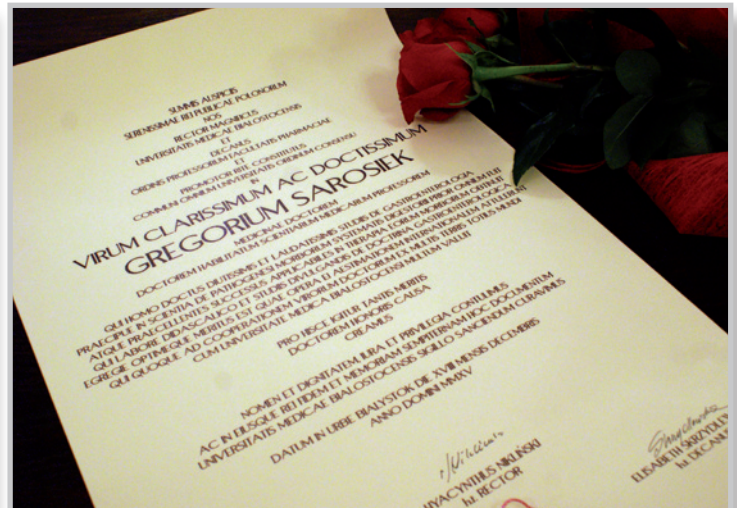 SUMMIS AUSPICIIS
SERENISSIMAE REI PUBLICAE POLONORUM
NOS
RECTOR MAGNIFICUS
UNIVERSITATIS MEDICAE BIALOSTOCENSIS
ET
DECANUS
ORDINIS PROFESSORUM FACULTATIS PHARMACIAE
ET
PROMOTOR RITE CONSTITUTUS
COMMUNI OMNIUM UNIVERSITATIS ORDINUM CONSENSU
IN
VIRUM CLARISSIMUM AC DOCTISSIMUM
GREGORIUM SAROSIEK
MEDICINAE DOCTOREM
DOCTOREM HABILITATUM SCIENTIARUM MEDICARUM PROFESSOREM
QUI HOMO DOCTUS DILITISSIMIS ET LAUDATISSIMIS STUDIIS DE GASTROENTEROLOGIA
PRAECIPUE IN SCIENTIA DE PATHOGENESI MORBORUM SYSTEMATIS DIGESTORII PRIOR OMNIUM FUIT
ATQUE PRAECELLENTES SUCCESSUS APPLICABILES IN THERAPIA EORUM MORBORUM OBTINUIT
QUI LABORE DIDASCALICO ET STUDIIS DIVULGANDIS DE DOCTRINA GASTROENTEROLOGICA
EGREGIE OPTIMEQUE MERITUS EST QUAE OPERA ET AESTIMATIONEM INTERNATIONALEM ATTULERUNT
QUI QUOQUE AD COOPERATIONEM VIRORUM DOCTORUM EX MULTIS TERRIS TOTIUS MUNDI
CUM UNIVERSITATE MEDICA BIALOSTOCENSI MULTUM VALUIT
PRO HISCE IGITUR TANTIS MERITIS
DOCTOREM HONORIS CAUSA
CREAMUS
NOMEN ET DIGNITATEM, IURA ET PRIVILEGIA CONTULIMUS
AC IN EIUSQUE REI FIDEM ET MEMORIAM SEMPITERNAM HOC DOCUMENTUM
UNIVERSITATIS MEDICAE BIALOSTOCENSIS SIGILLO SANCIENDUM CURAVIMUS
DATUM IN URBE BIALYSTOK DIE XVIII MENSIS DECEMBRIS
ANNO DOMINI MMXV
HYACYNTHUS NIKLIŃSKI
h.t. RECTOR
ELISABETH
h.t. DECANUS